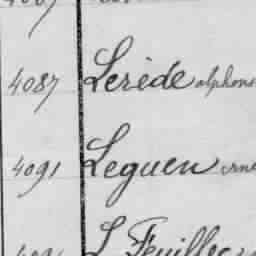 4087 Lerède alphons
4091 Leguen erne
L Feuillec